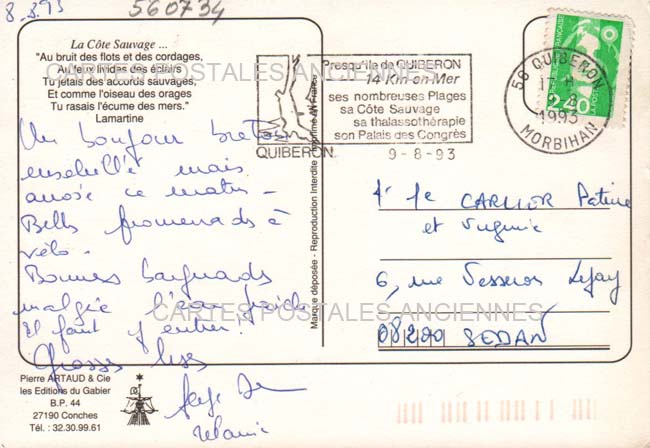 8.8.93
560734
La Côte Sauvage ...
"Au bruit des flots et des cordages,
Aux feux livides des éclairs
Tu jetais des accords sauvages,
Et comme l'oiseau des orages
Tu rasais l'écume des mers."
Lamartine
CARTES POSTALES ANCIENNES
Presqu'île de QUIBERON
14 Km en Mer
ses nombreuses Plages
sa Côte Sauvage
sa thalassothérapie
son Palais des Congrès
QUIBERON
9-8-93
56 QUIBERON
17 H
1993
MORBIHAN
2,40
Un bonjour breton
ensoleillé mais
arrosé ce matin -
Belles promenades à
vélo -
Bonnes baignades
malgré l'eau froide
Il faut y entrer!
Grosses bises
Serge
Mélanie
Marque déposée - Reproduction Interdite - Imprimé en France
CARLIER Patrice
et Virginie
6, rue Vesseron Lejay
08200 SEDAN
CARTES POSTALES ANCIENNES
Pierre ARTAUD & Cie
les Editions du Gabier
B.P. 44
27190 Conches
Tél. : 32.30.99.61